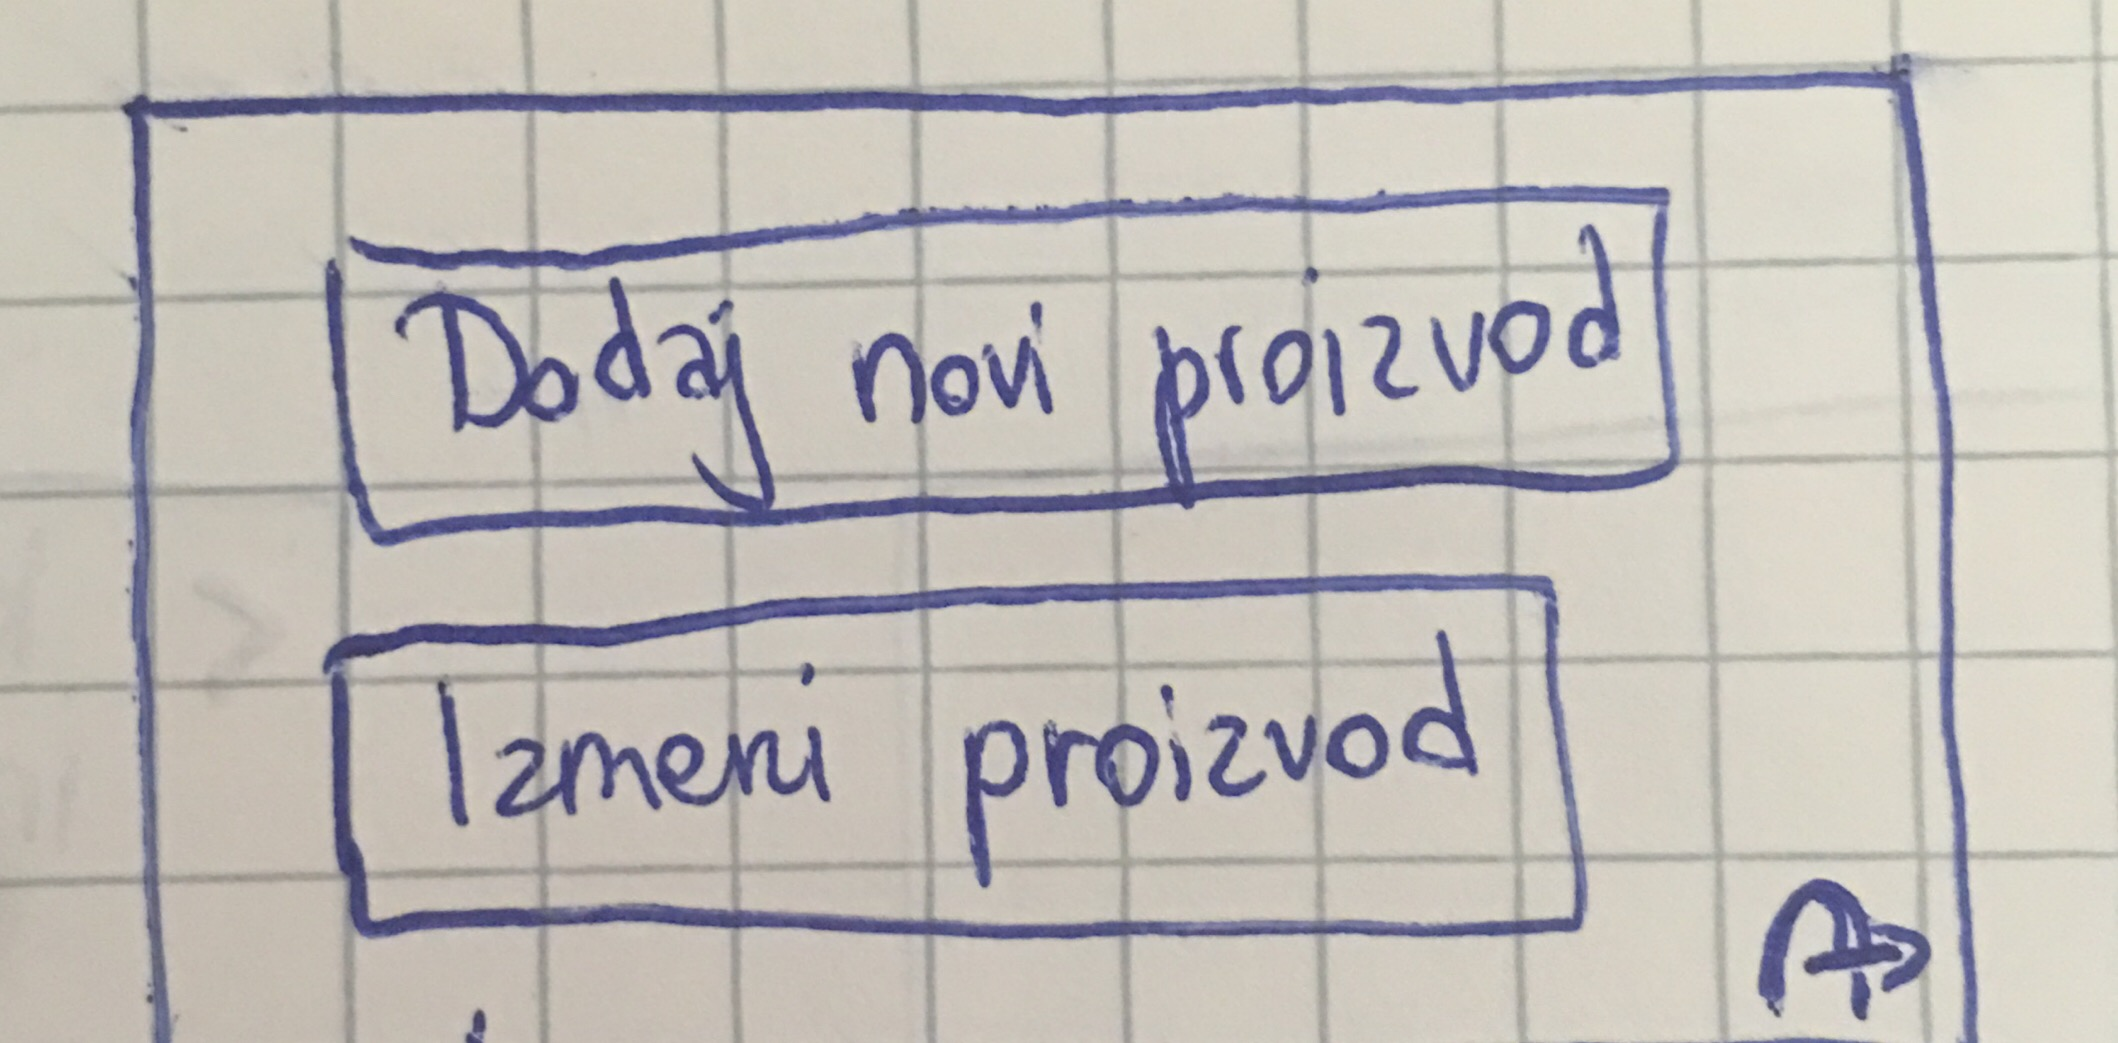 Dodaj novi proizvod
Izmeni proizvod